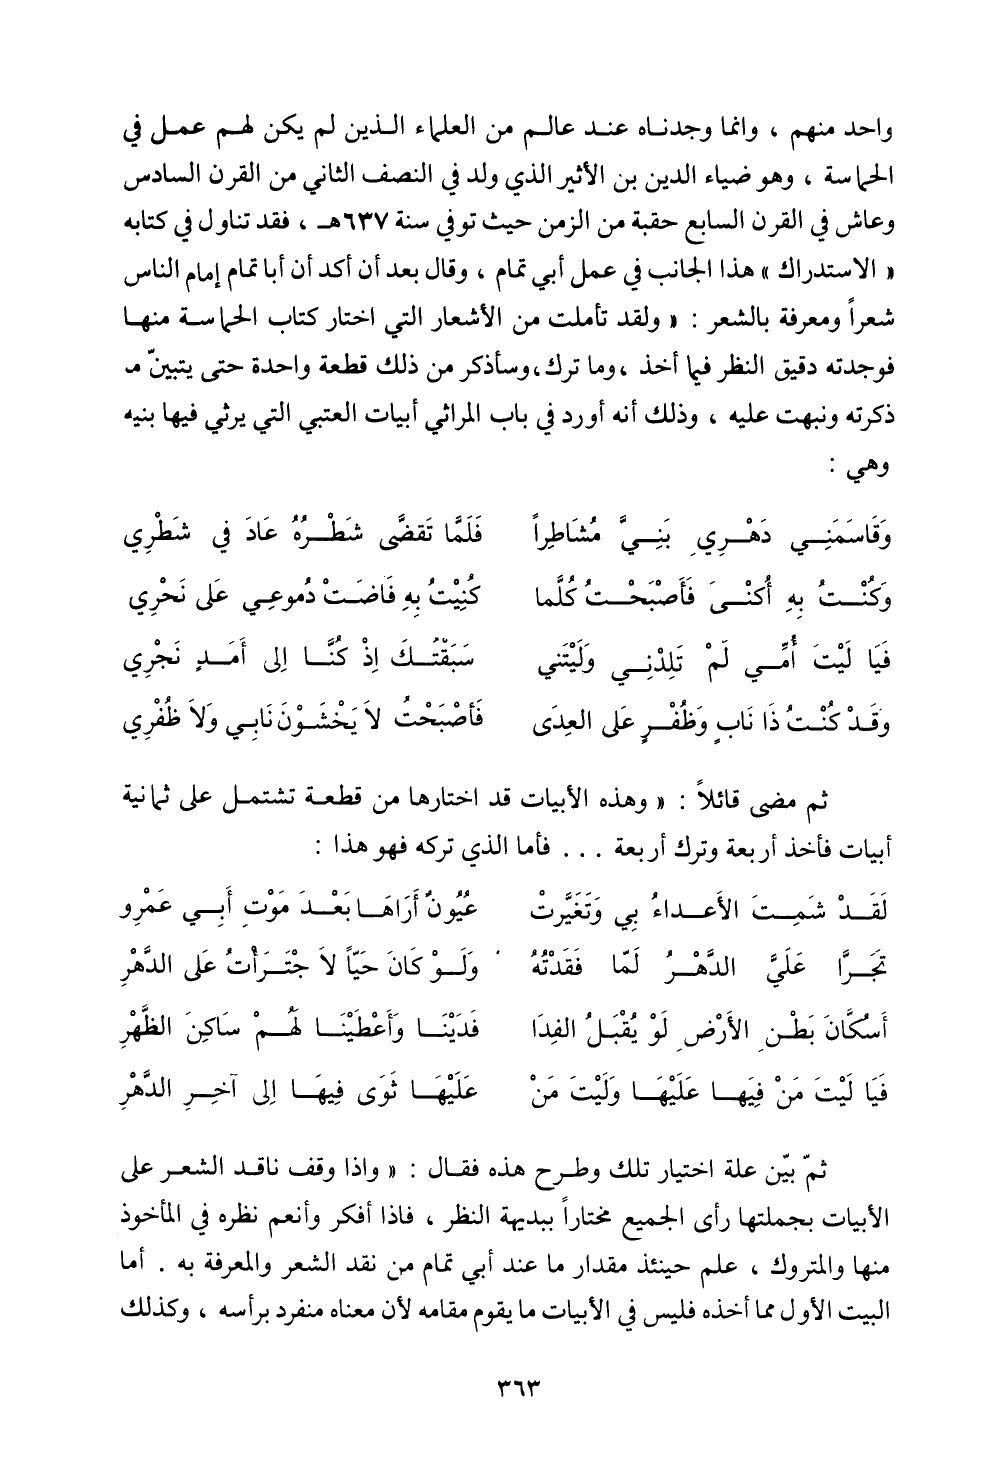 واحد منهم ، وانما وجدناه عند عالم من العلماء الذين لم يكن لهم عمل في
الحماسة ، وهو ضياء الدين بن الأثير الذي ولد في النصف الثاني من القرن السادس
وعاش في القرن السابع حقبة من الزمن حيث توفي سنة ٦٣٧هـ ، فقد تناول في كتابه
« الاستدراك » هذا الجانب في عمل أبي تمام ، وقال بعد أن أكد أن أبا تمام إمام الناس
شعراً ومعرفة بالشعر : « ولقد تأملت من الأشعار التي اختار كتاب الحماسة منها
فوجدته دقيق النظر فيما أخذ ،وما ترك،وسأذكر من ذلك قطعة واحدة حتى يتبينّ مـ
ذكرته ونبهت عليه ، وذلك أنه أورد في باب المراثي أبيات العتبي التي يرثي فيها بنيه
وهي :
وَقَاسَمَنِي دَهْرِي بَنِيَّ مُشَاطِراً فَلَمَّا تَقضَّى شَطْرُهُ عَادَ في شَطْرِي
وَكُنْتُ بِهِ أُكنْىَ فَأَصْبَحْتُ كُلَّما كُنِيْتُ بِهِ فَاضَتْ دُموعِي عَلى نَحْرِي
فَيَا لَيْتَ أُمِّي لَمْ تَلِدْنِي وَلَيْتَني سَبَقْتُكَ إِذْ كُنَّا إلى أَمَدٍ نَجْرِي
وَقَدْ كُنْتُ ذَا نَابٍ وَظُفْرٍ عَلى العِدَى فَأصْبَحْتُ لاَ يَخْشَوْنَ نَابِي وَلاَ ظُفْرِي
ثم مضى قائلاً : « وهذه الأبيات قد اختارها من قطعة تشتمل على ثمانية
أبيات فأخذ أربعة وترك أربعة . . . فأما الذي تركه فهو هذا :
لَقَدْ شَمِتَ الأَعداءُ بِي وَتَغَيَّرتْ عُيُونٌ أَرَاهَا بَعْدَ مَوْتِ أَبِي عَمْرِو
تَجَرَّا عَلَيَّ الدَّهْرُ لَمّا فَقَدْتُهُ وَلَوْ كَانَ حَيّاً لاَ جْتَرَأْتُ عَلى الدَّهْرِ
أَسُكَّانَ بَطْنِ الأَرْضِ لَوْ يُقْبَلُ الفِدَا فَدَيْنَا وَأَعْطَيْنَا لَهُمْ سَاكِنَ الظَّهْرِ
فَيَا لَيْتَ مَنْ فِيَها عَلَيْهَا وَلَيْتَ مَنْ عَلَيْهَا ثَوَى فِيهَا إلى آخِرِ الدَّهْرِ
ثمّ بيّن علة اختيار تلك وطرح هذه فقال : « واذا وقف ناقد الشعر على
الأبيات بجملتها رأى الجميع مختاراً ببديهة النظر ، فاذا أفكر وأنعم نظره في المأخوذ
منها والمتروك ، علم حينئذ مقدار ما عند أبي تمام من نقد الشعر والمعرفة به . أما
البيت الأول مما أخذه فليس في الأبيات ما يقوم مقامه لأن معناه منفرد برأسه ، وكذلك
٣٦٣